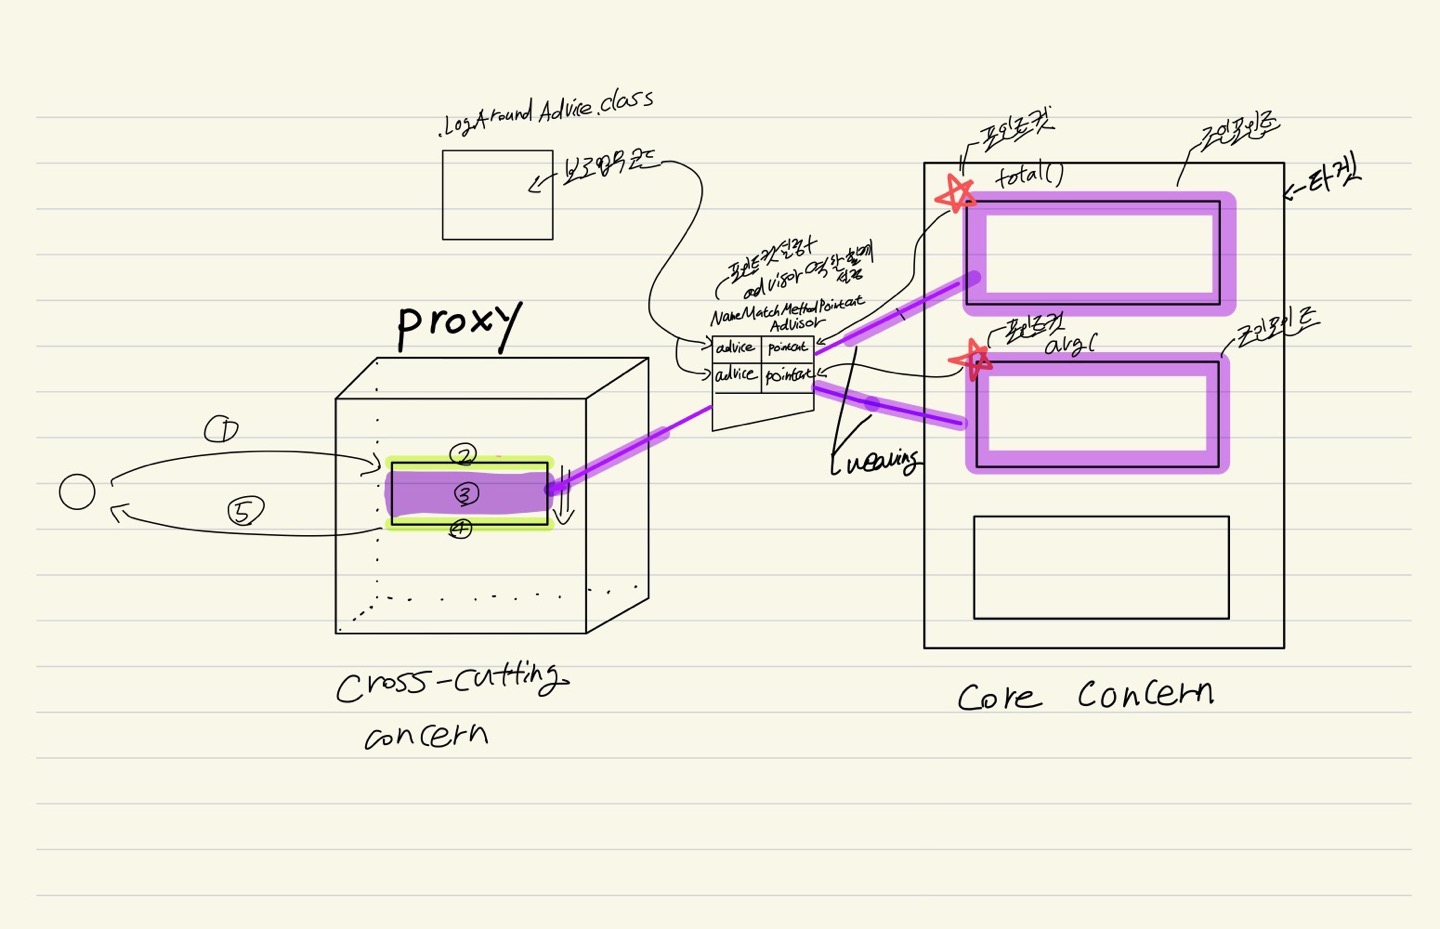 .LogAroundAdvice.class
보조업무코드
포인트컷
조인포인트
total()
타겟
포인트컷설정+
advisor 역할 함께
설정
NameMatchMethodPointcut
Advisor
advice pointcut
advice pointcut
포인트컷
avg(
조인포인트
weaving
proxy
①
②
③
④
⑤
cross-cutting
concern
Core Concern